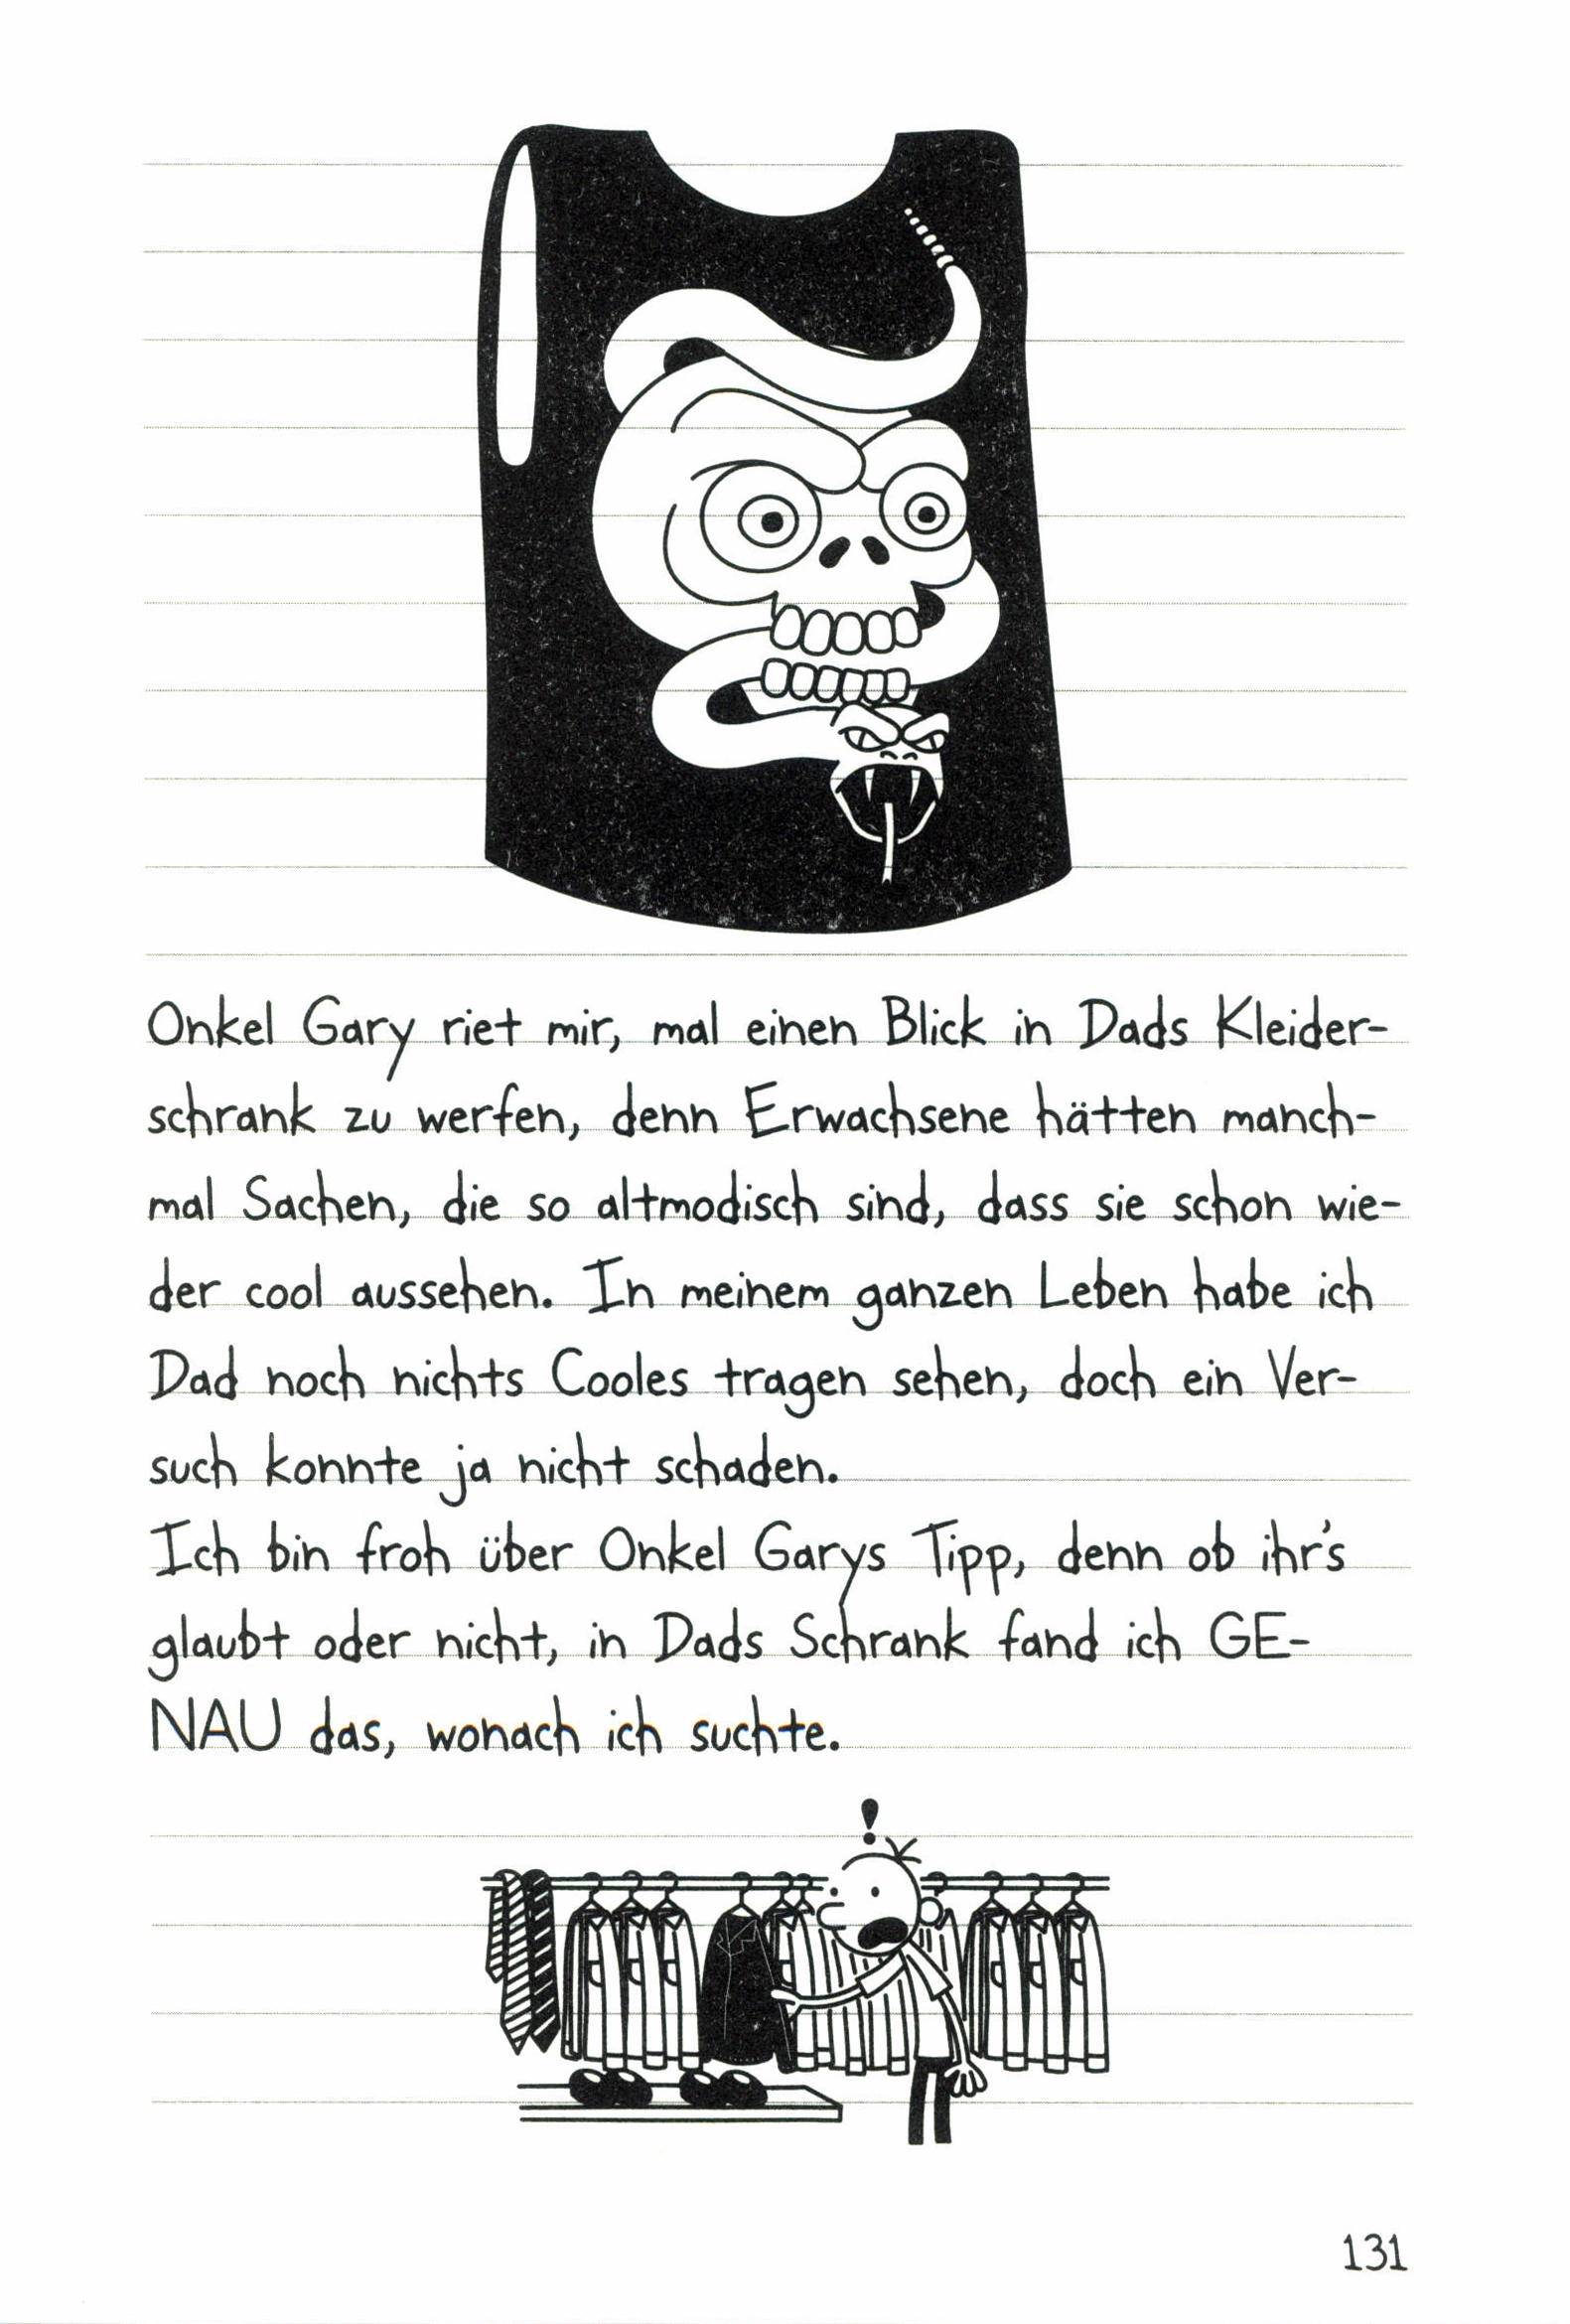 Onkel Gary riet mir, mal einen Blick in Dads Kleider-
schrank zu werfen, denn Erwachsene hätten manch-
mal Sachen, die so altmodisch sind, dass sie schon wie-
der cool aussehen. In meinem ganzen Leben habe ich
Dad noch nichts Cooles tragen sehen, doch ein Ver-
such konnte ja nicht schaden.
Ich bin froh über Onkel Garys Tipp, denn ob ihr's
glaubt oder nicht, in Dads Schrank fand ich GE-
NAU das, wonach ich suchte.
!
131